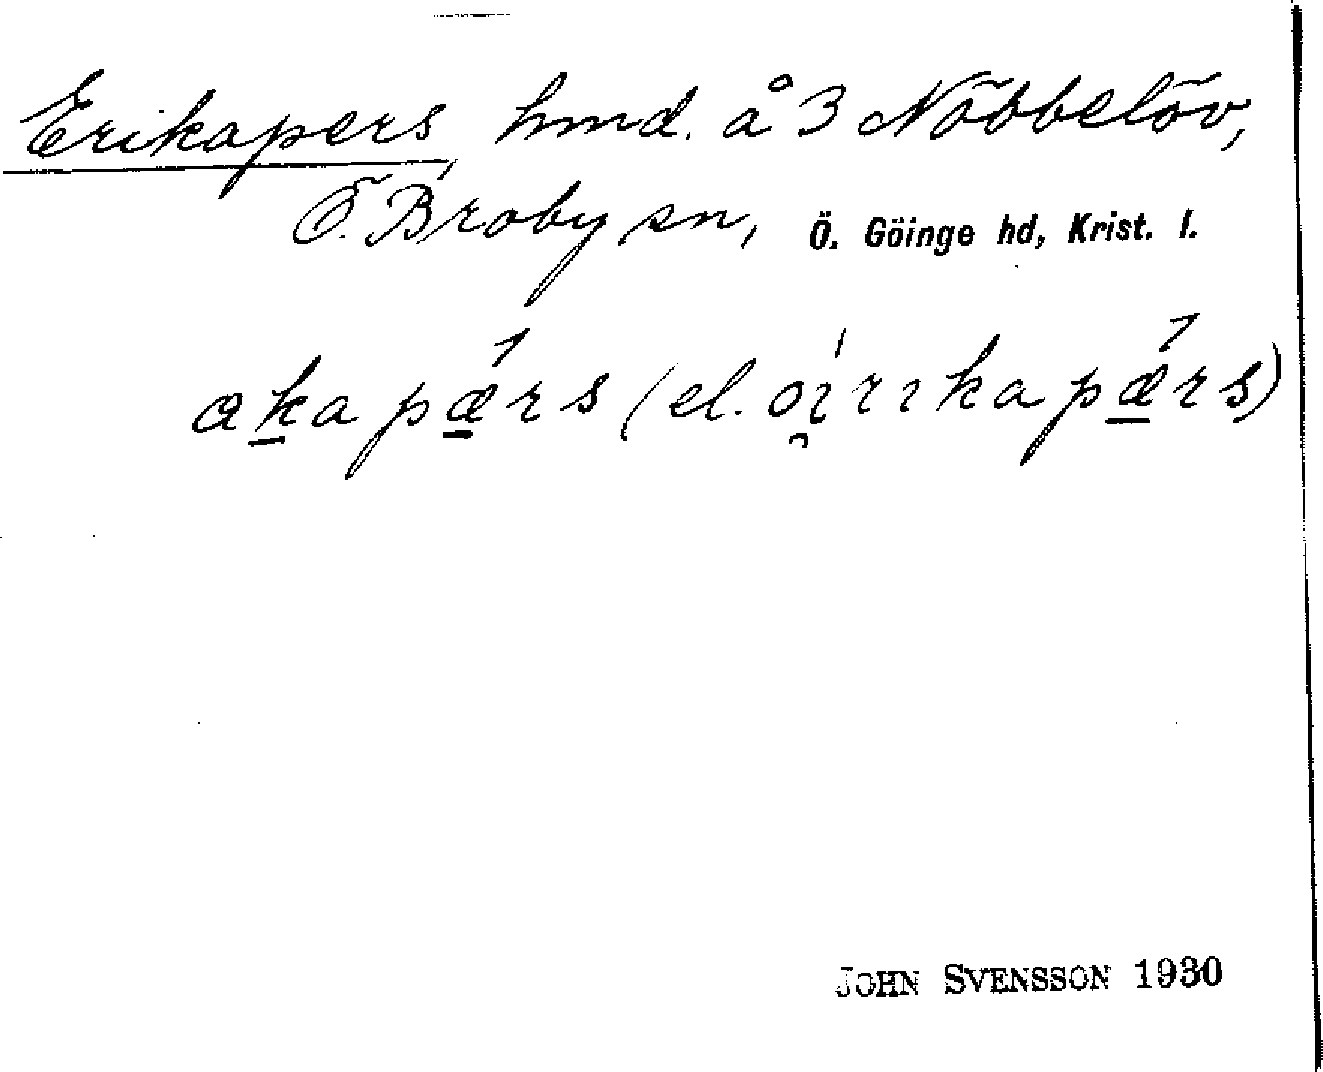 Erikapers hmd. å 3 Nöbbelöv,
Ö. Broby sn, Ö. Göinge hd, Krist. l.
akapǽrs (el. ói̯rıkapǽrs)
JOHN SVENSSON 1930